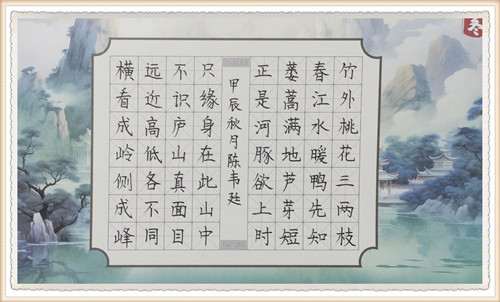 竹外桃花三两枝
春江水暖鸭先知
蒌蒿满地芦芽短
正是河豚欲上时
横看成岭侧成峰
远近高低各不同
不识庐山真面目
只缘身在此山中
甲辰秋月陈韦廷